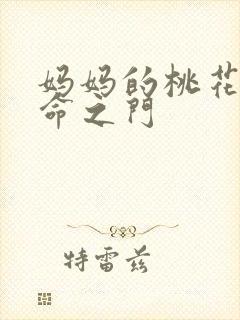 妈妈的桃花
命之门
特雷兹